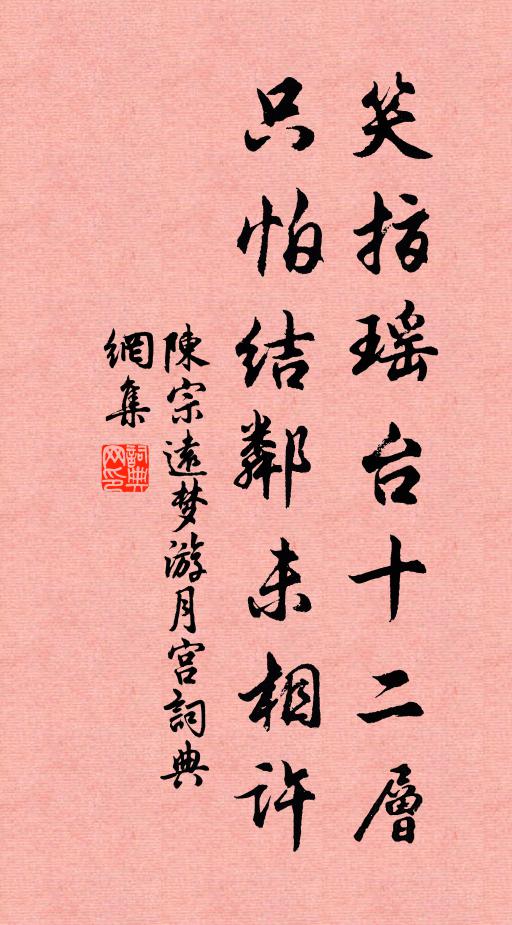 笑指瑶台十二層
只怕結鄰未相許
陳宗遠梦游月宫詞典
網集
詞典
网印